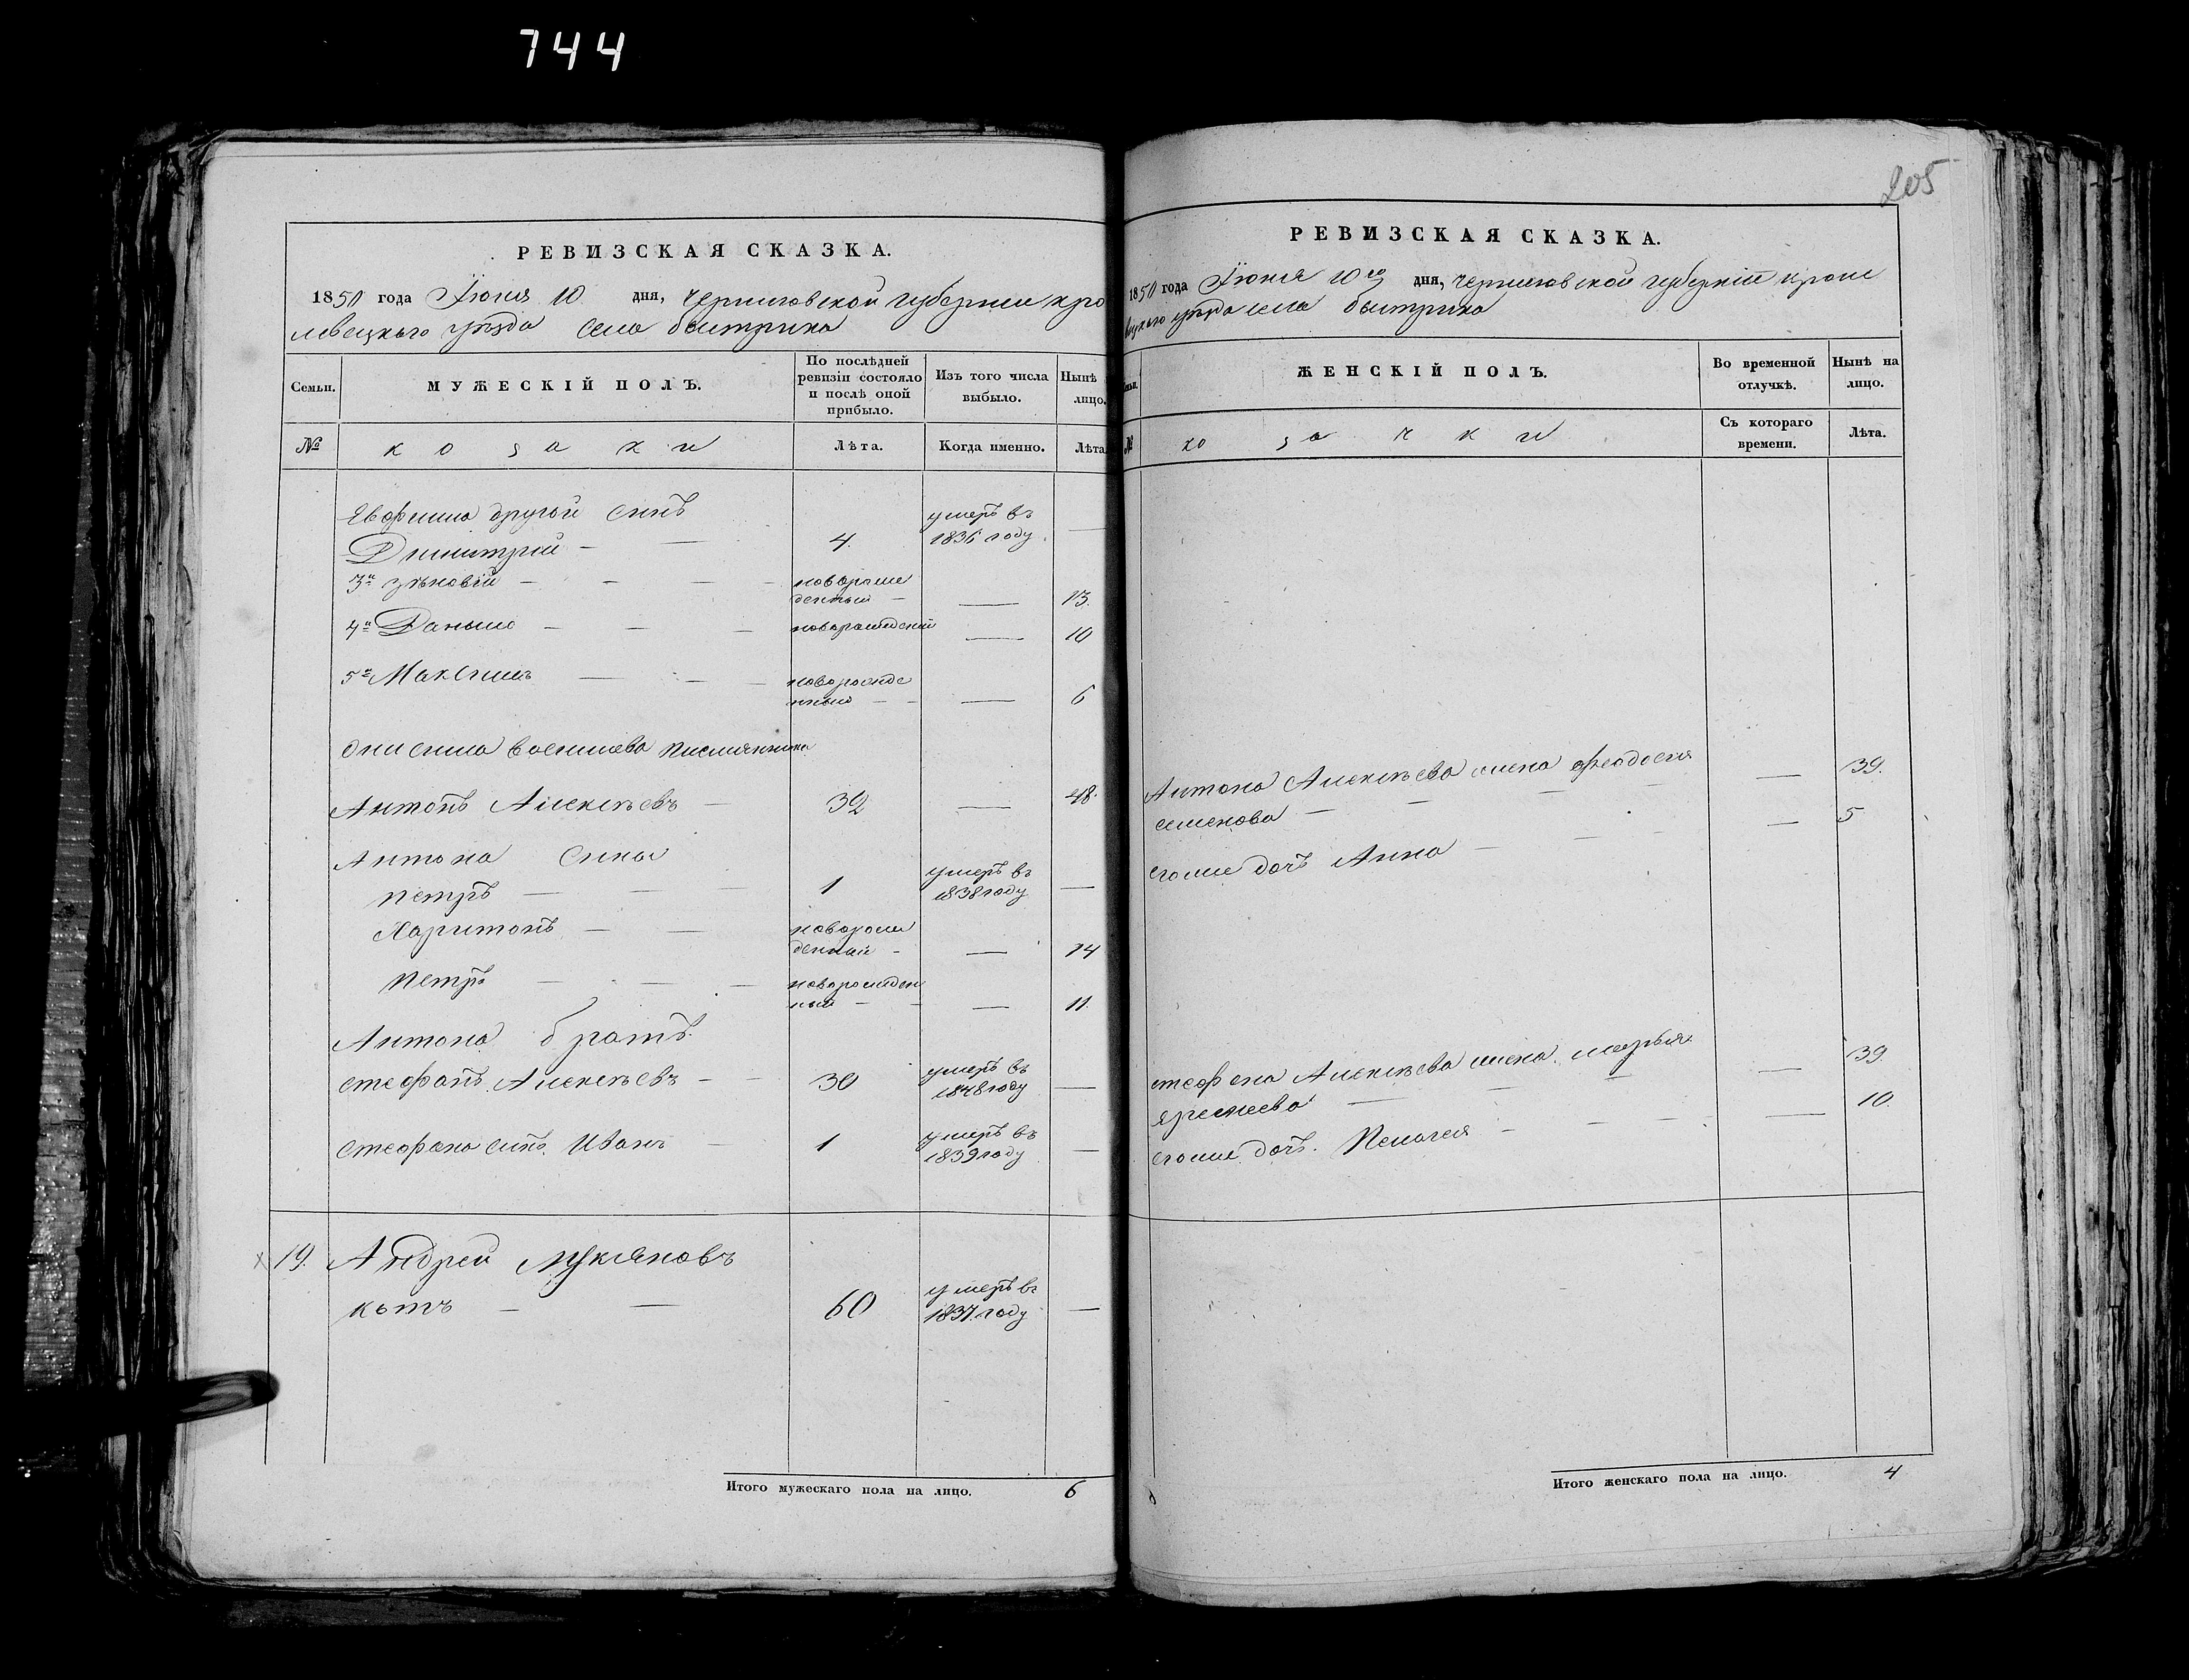 744
205
РЕВИЗСКАЯ СКАЗКА.
1850 года Іюня 10 дня, Черниговской губернии кро
левецкаго уѣзда села быстрика
Семьи. МУЖЕСКІЙ ПОЛЪ. По послѣдней ревизіи состояло и послѣ оной прибыло. Изъ того числа выбыло. Нынѣ лицо.
№ козаки Лѣта. Когда именно. Лѣта
другой синъ умеръ въ
Димитрій — — 4. 1836 году —
3й зѣновій — — — новорож
денный — — 13.
4й Данило — — — новорожденій — 10
5й Максимъ — — — новорожде
нный — — — 6
Антонъ Алексѣевъ — 32 — 48.
Антона сины
Петръ — — — 1 умеръ въ
1838 году —
Харитонъ — — новорож
денный — — 14
Петръ — — — новорожден
ный — — — 11.
Антона братъ.
стефанъ Алексѣевъ — — 30 умеръ въ
1848 году —
стефана синъ Иванъ — 1 умеръ въ
1839 году —
19. Андрей Лукяновъ
котъ — — 60 умеръ въ
1837 году —
Итого мужескаго пола на лицо. 6
РЕВИЗСКАЯ СКАЗКА.
1850 года Іюня 10го дня, Черниговской губерніи кроле
вецкаго уѣзда села быстрика
ЖЕНСКІЙ ПОЛЪ. Во временной отлучкѣ. Нынѣ на лицо.
№ козачки Съ котораго времени. Лѣта.
Антона Алексѣева жена феодосия — 39.
семенова — — — —
егоже дочь Анна — — — — 5
стефана Алексѣева жена марья — 39.
— — —
егоже дочь Пелагея — — — — 10.
Итого женскаго пола на лицо. 4